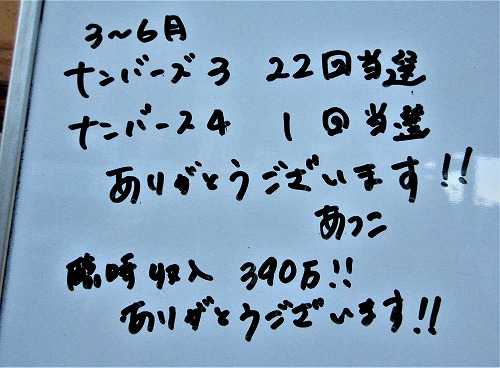 3～6月
ナンバーズ3 22回当選
ナンバーズ4 1回当選
ありがとうございます!!
あつこ
臨時収入 390万!!
ありがとうございます!!